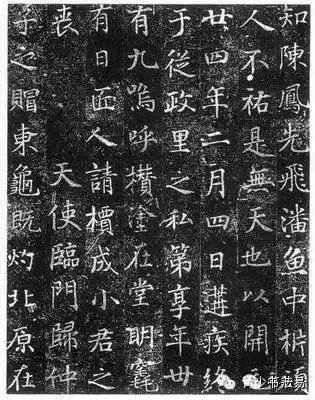 知陳鳳先飛潘魚中析
人不祐是無天也以開元
廿四年二月四日遘疾終
于從政里之私第享年卅
有九嗚呼攢塗在堂明
有日人請櫝成小君之
喪 天使臨門歸仲
子之賵東龜既灼北原在